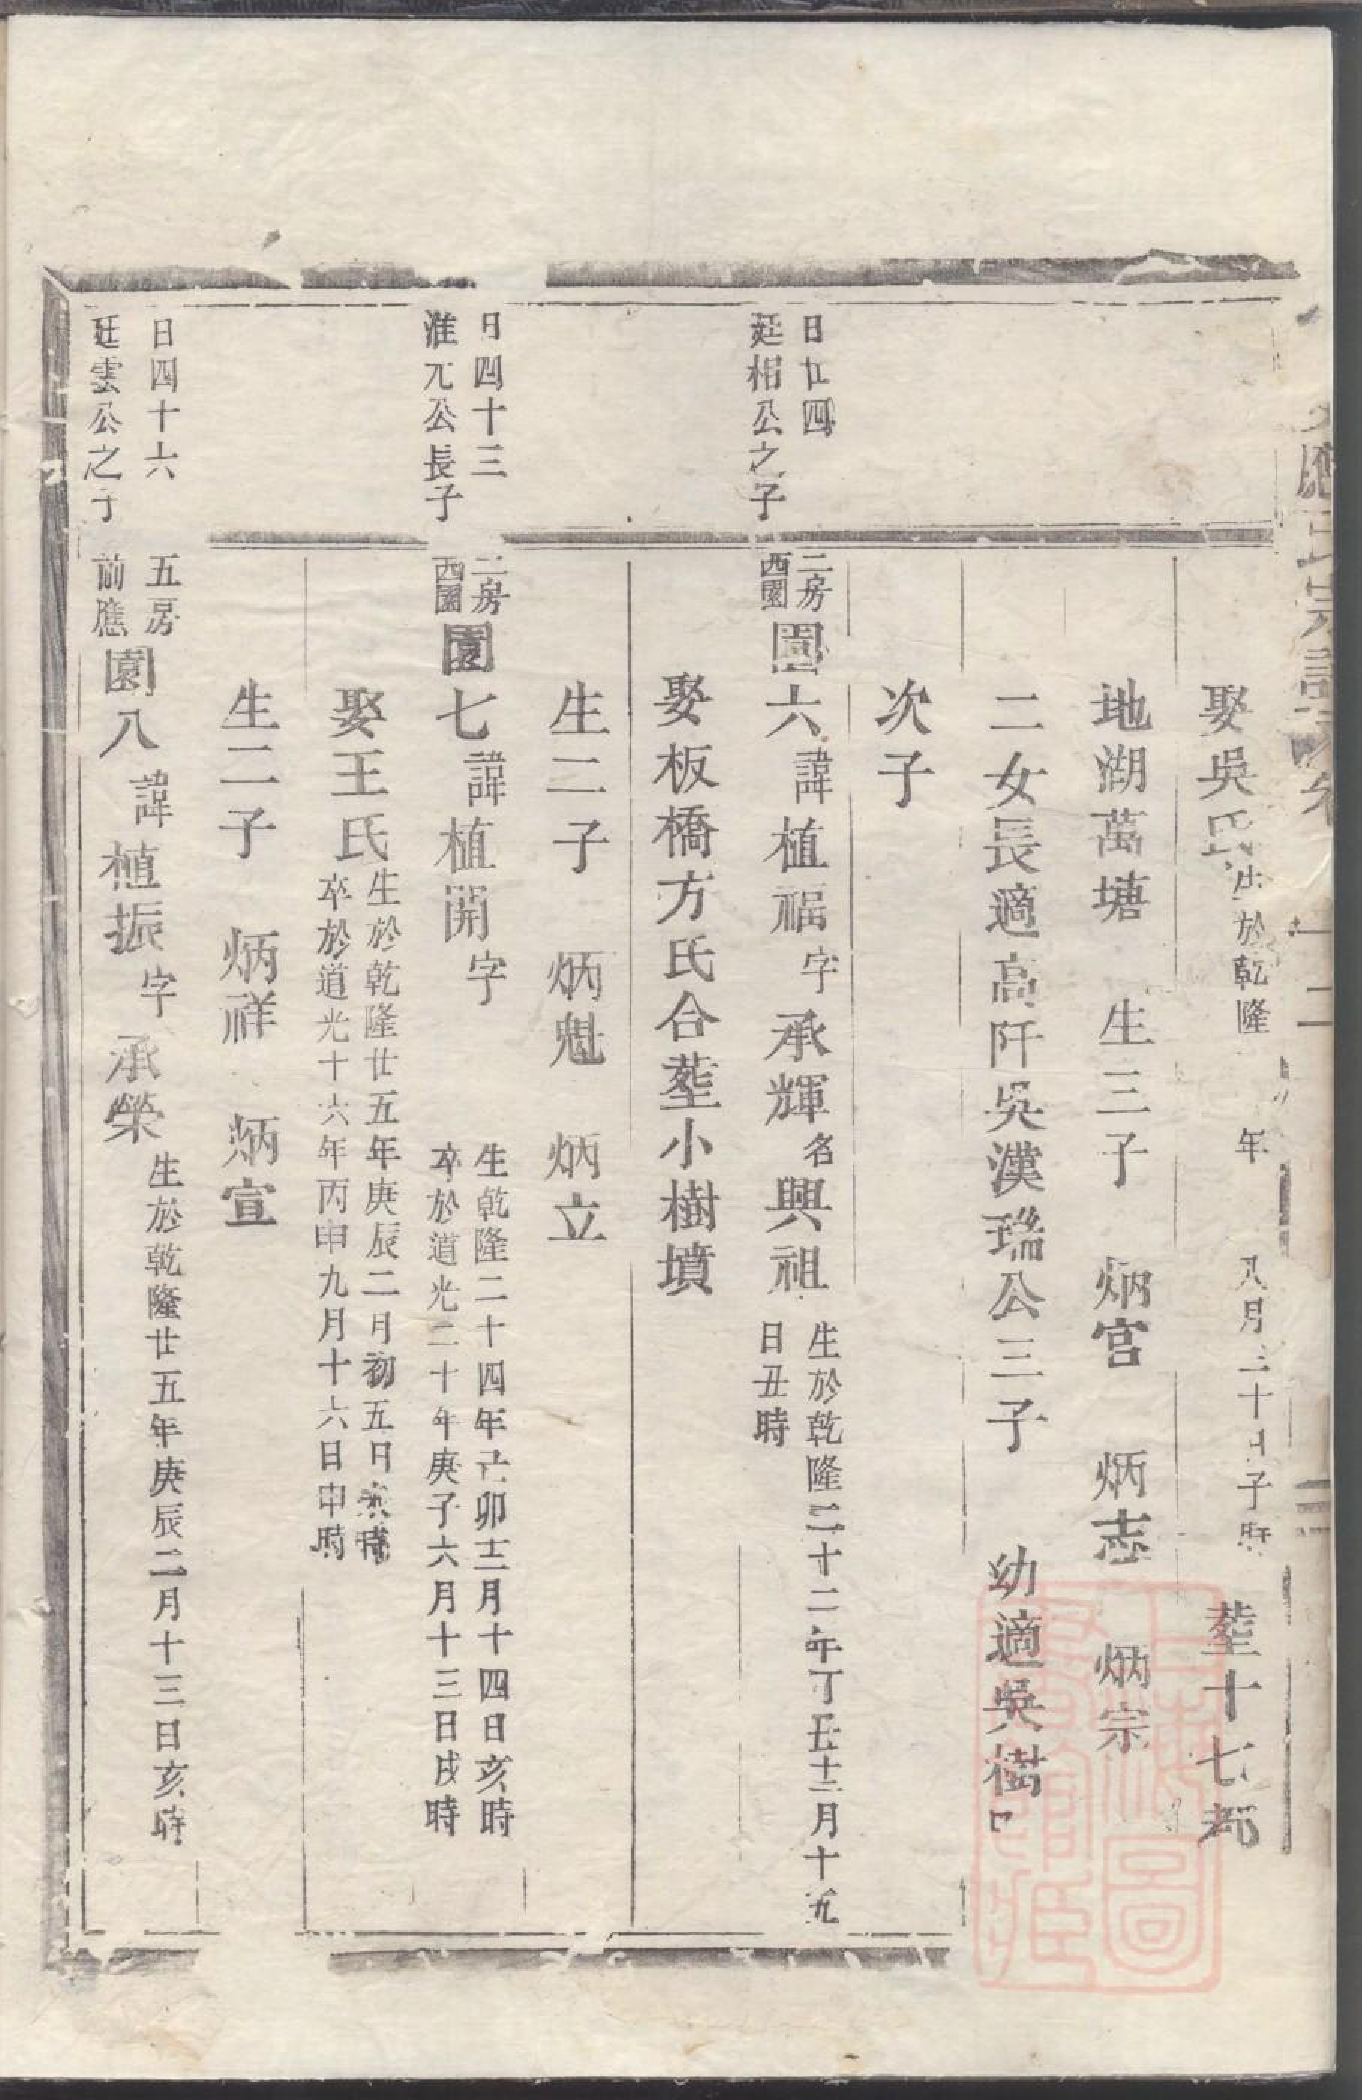 應氏宗譜卷
十二
娶吳氏生於乾隆 年 八月二十日子時 塟十七都
地湖萬塘 生三子 炳官 炳志 炳宗
二女長適高阡吳漢瑞公三子 幼適吳樹
次子
日廿四
廷相公之子
二房
西園
園六諱植福字承輝名興祖
生於乾隆二十二年丁丑十二月十五
日丑時
娶板橋方氏合塟小樹墳
生二子 炳魁 炳立
日四十三
淮兀公長子
二房
西園
園七諱植開字
生乾隆二十四年己卯十二月十四日亥時
卒於道光二十年庚子六月十三日戌時
娶王氏
生於乾隆廿五年庚辰二月初五日亥時
卒於道光十六年丙申九月十六日申時
生二子 炳祥 炳宣
日四十六
廷雲公之子
五房
前應
園八諱植振字承榮
生於乾隆廿五年庚辰二月十三日亥時
上海圖
書館藏